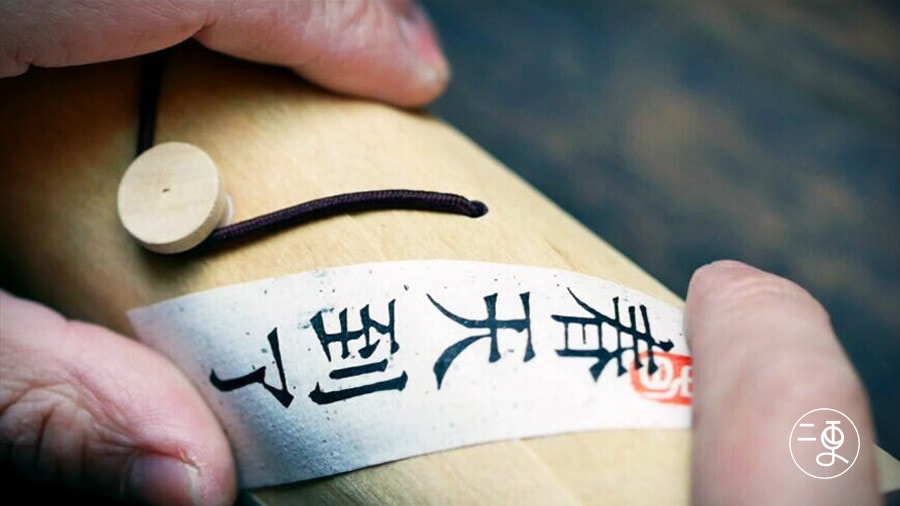 春天到了
二更